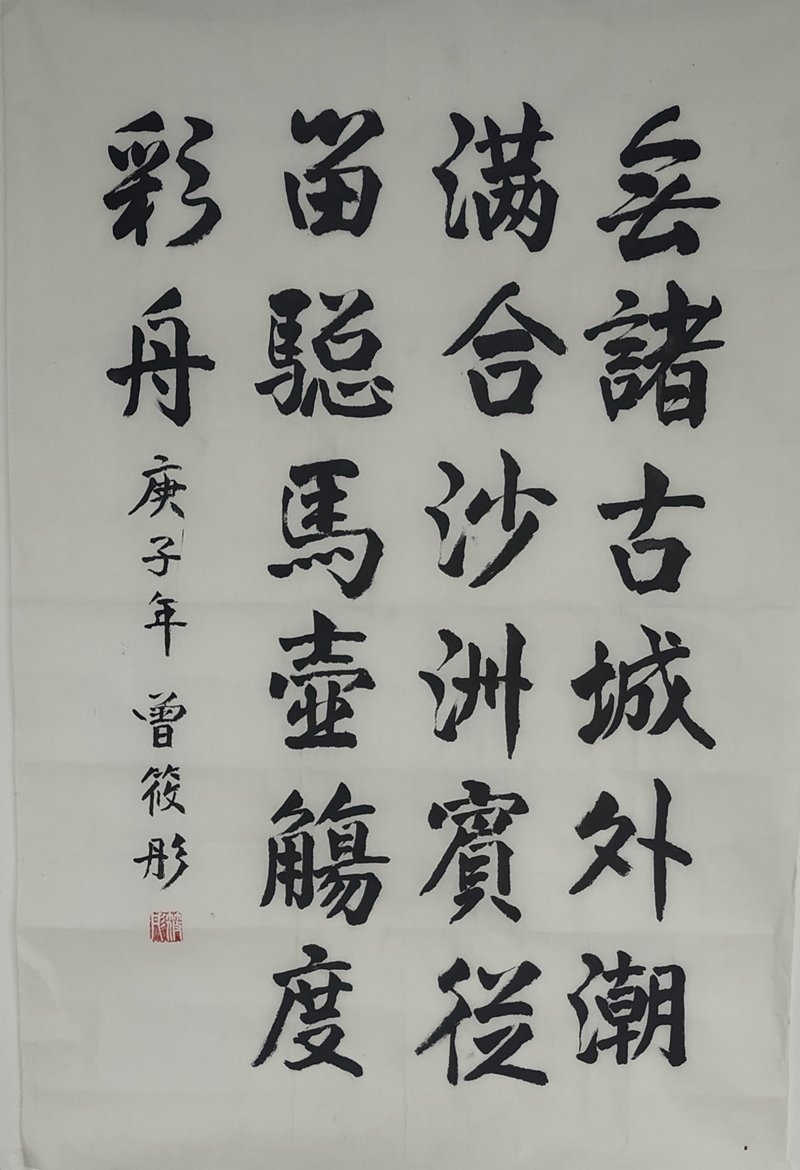 無諸古城外潮
满合沙洲賓從
留驄馬壺觴度
彩舟
庚子年 曾筱彤